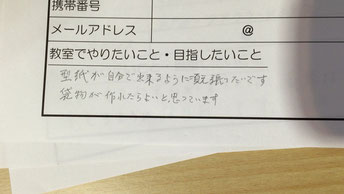 携帯番号
メールアドレス @
教室でやりたいこと・目指したいこと
型紙が自分で出来るように頑張りたいです
袋物が作れたらよいと思っています